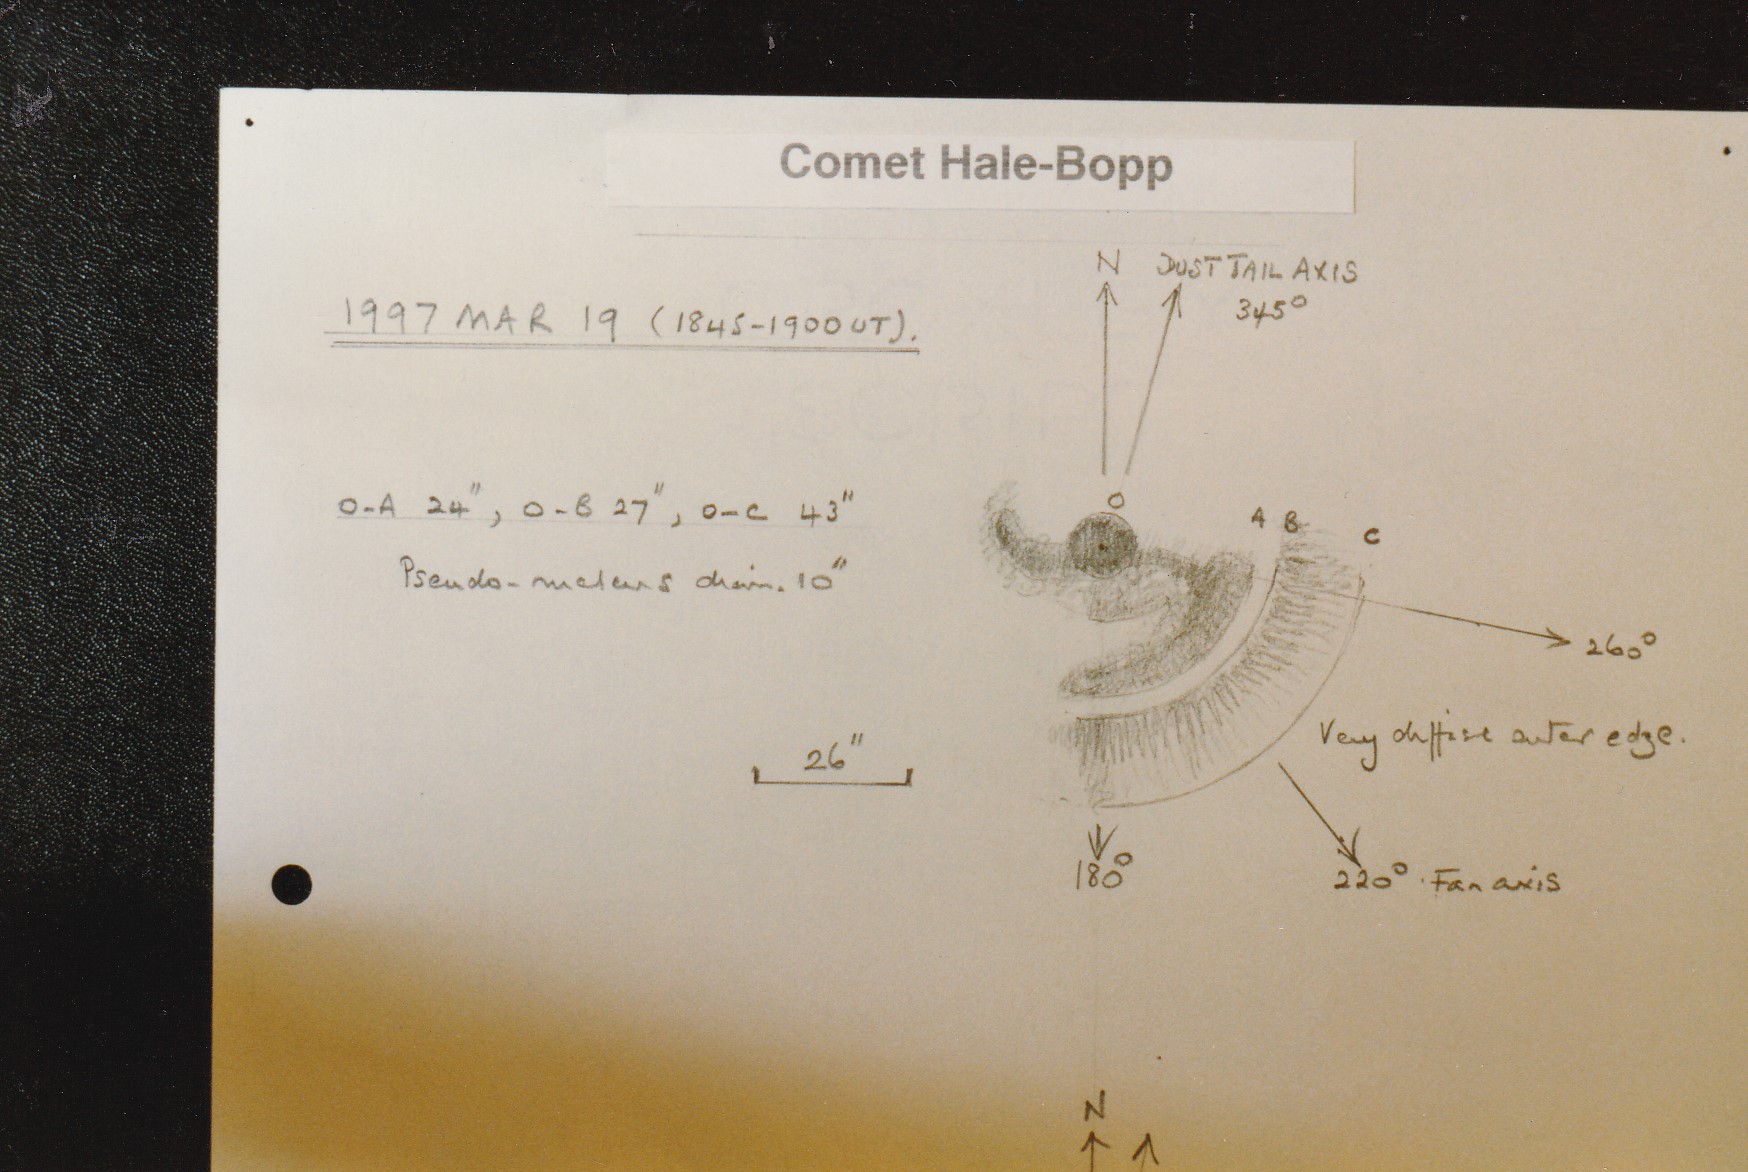 Comet Hale-Bopp
N DUST TAIL AXIS
345°
1997 MAR 19 (1845-1900 UT).
O-A 24", O-B 27", O-C 43"
O
A B
C
Pseudo-nucleus diam. 10"
260°
Very diffuse outer edge.
26"
180°
220° Fan axis
N